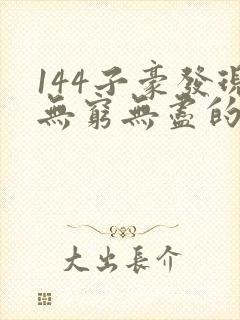 144子豪發現
無窮無盡的
大出長介